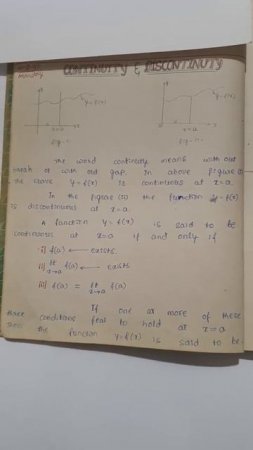 Monday
CONTINUITY & DISCONTINUTY
y=f(x)
y=f(x)
x=a
x=a
fig-I
fig-II
The word continuty means with out
break or with out gap. In above figure (I)
the curve y=f(x) is continuous at x=a.
In the figure (II) the function y=f(x)
is discontinuous at x=a.
A function y=f(x) is said to be
continuous at x=a if and only if
i) f(a) ← exists.
ii) lt x→a f(x) ← exists
iii) f(a) = lt x→a f(x)
If one or more of these
three conditions feal to hold at x=a
then the function y=f(x) is said to be